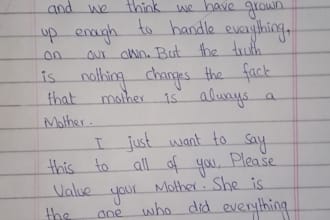 and we think we have grown
up enough to handle everything,
on our own. But the truth
is nothing changes the fact
that mother is always a
Mother.
I just want to say
this to all of you. Please
Value your Mother. She is
the one who did everything